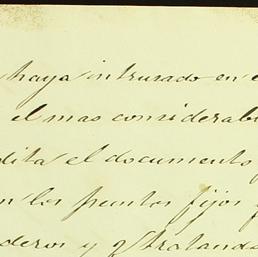 haya intrusado en e
el mas considerab
dita el documento
n los puntos fijos
deros y q tratand